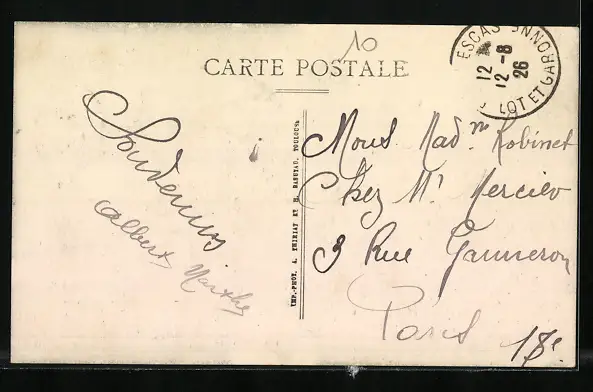 10
CARTE POSTALE
ESCAS ONNARD
12 -8
12
26
LOT ET GARONNE
Souvenirs
Albert Marthe
IMP.-PHOT. A. THIRIAT ET H. BASUYAU, TOULOUSE
Mons Mad.me Robinet
Chez Mr Mercier
3 Rue Ganneron
Paris 17e